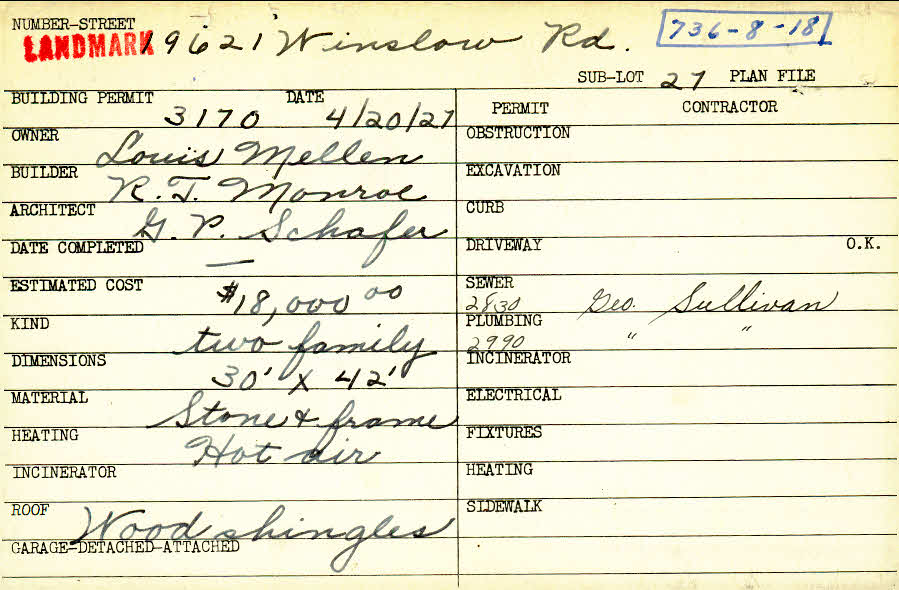 NUMBER-STREET
LANDMARK 19621 Winslow Rd. 736-8-18
SUB-LOT 27 PLAN FILE
BUILDING PERMIT 3170 DATE 4/20/27
OWNER Louis Mellen
BUILDER R.T. Monroe
ARCHITECT G. P. Schafer
DATE COMPLETED —
ESTIMATED COST $18,000 00
KIND two family
DIMENSIONS 30' x 42'
MATERIAL Stone & frame
HEATING Hot air
INCINERATOR
ROOF Wood shingles
GARAGE-DETACHED-ATTACHED
PERMIT CONTRACTOR
OBSTRUCTION
EXCAVATION
CURB
DRIVEWAY O.K.
SEWER
2830 Geo. Sullivan
PLUMBING
2990 " "
INCINERATOR
ELECTRICAL
FIXTURES
HEATING
SIDEWALK